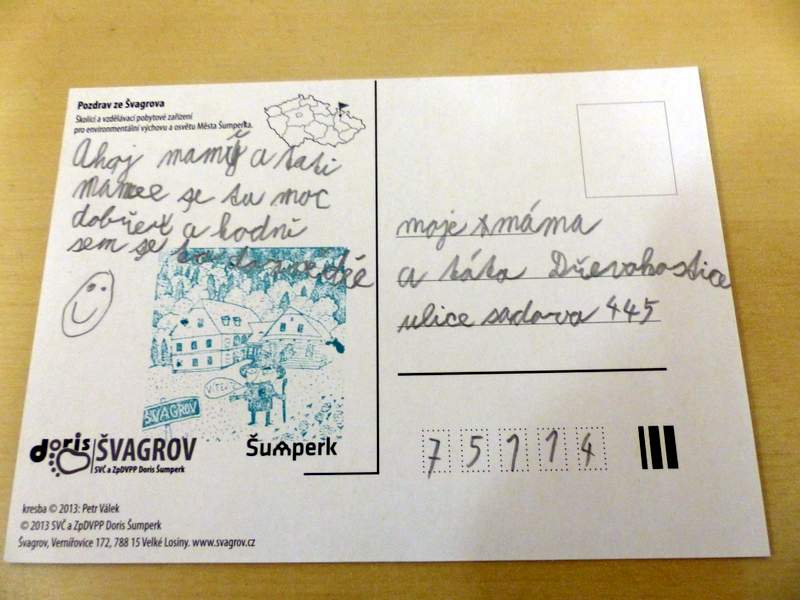 Pozdrav ze Švagrova
Školící a vzdělávací pobytové zařízení
pro environmentální výchovu a osvětu Města Šumperka.
Ahoj mamy a tati
máme se tu moc
dobře a hodně
sem se tu
moje máma
a táta Dřevohostice
ulice sadova 445
75114
VÍTEJ
ŠVAGROV
doris ŠVAGROV
SVČ a ZpDVPP Doris Šumperk
Šumperk
kresba © 2013: Petr Válek
© 2013 SVČ a ZpDVPP Doris Šumperk
Švagrov, Vernířovice 172, 788 15 Velké Losiny. www.svagrov.cz